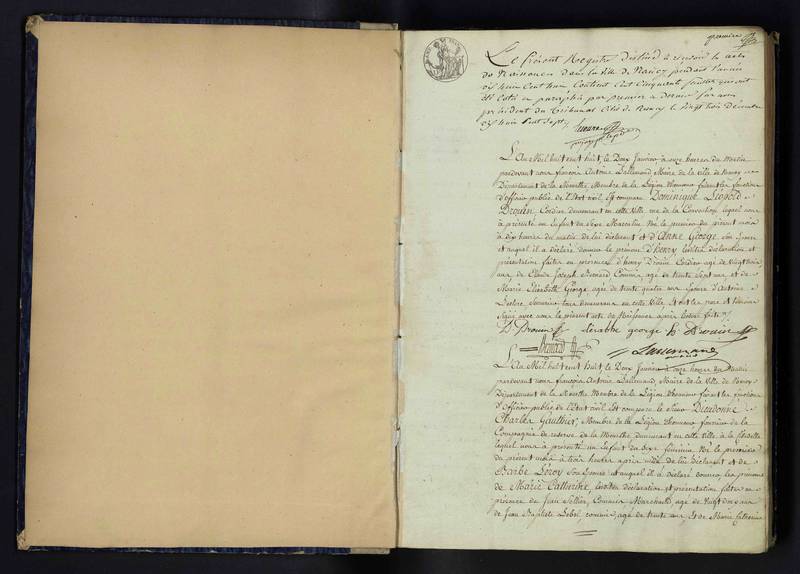 premier
Le présent Registre destiné à recevoir les actes
de Naissances dans la ville de Nancy pendant l'année
dix huit cent huit, Contient Cent Cinquante feuillets qui ont
été cotés et paraphés par premier et dernier par nous
président du Tribunal Civil de Nancy le vingt trois Décembre
dix huit Cent Sept,
L'An Mil huit cent huit, le Deux Janvier à onze heures du Matin
pardevant nous françois Antoine Lallemand Maire de la ville de Nancy
Département de la Meurthe, Membre de la Légion d'honneur faisant les fonctions
d'officier public de l'Etat civil, Est comparu Dominique Léopold
Drouin, Cordier demeurant en cette Ville rue de la Constitution, lequel nous
a présenté un Enfant du Sexe Masculin Né le premier du présent mois
à dix heures du matin de lui déclarant et d'Anne George, son Epouse
et auquel il a déclaré donner le prénom d'henry lesdites déclaration et
présentation faites en présence d'henry Drouin Cordier agé de vingt trois
ans, de Claude Joseph Bernard Commis, agé de trente sept ans et de
Marie Elizabeth George, agée de trente quatre ans Epouse d'Antoine
tous demeurans en cette Ville Et ont les père et témoins
signé avec nous le présent acte de Naissance après lecture faite.
D Drouin george h Drouin
Bernard Lallemand
L'An Mil huit cent huit, le Deux Janvier à onze heures du Matin
pardevant nous françois Antoine Lallemand, Maire de la Ville de Nancy
Département de la Meurthe Membre de la Légion d'honneur faisant les fonctions
d'Officier public de l'Etat civil Est comparu le Sieur Dieudonné
Charles Gauthier, Membre de la Légion d'honneur fourrier de la
Compagnie de reserve de la Meurthe demeurant en cette ville à la Citadelle
lequel nous a présenté un Enfant du sexe féminin Né le premier
du présent mois à trois heures après midi de lui déclarant et de
Barbe Leroy son Epouse et auquel il a déclaré donner les prénoms
de Marie Catherine, lesdites déclaration et présentation faites en
présence de Jean Commis Marchand, agé de vingt deux ans
de Jean Baptiste Lebel, commis, agé de trente ans Et de Marie Catherine